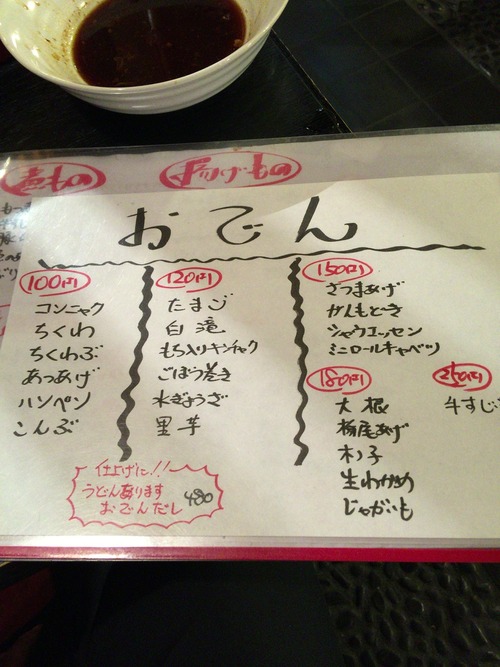 煮もの
揚げもの
おでん
100円
コンニャク
ちくわ
ちくわぶ
あつあげ
ハンペン
こんぶ
120円
たまご
白滝
もち入りキンチャク
ごぼう巻き
水ぎょうざ
里芋
150円
さつまあげ
がんもどき
シャウエッセン
ミニロールキャベツ
180円
大根
栃尾あげ
木ノ子
生わかめ
じゃがいも
250円
牛すじ
仕上げに!!
うどんあります
おでんだし
480